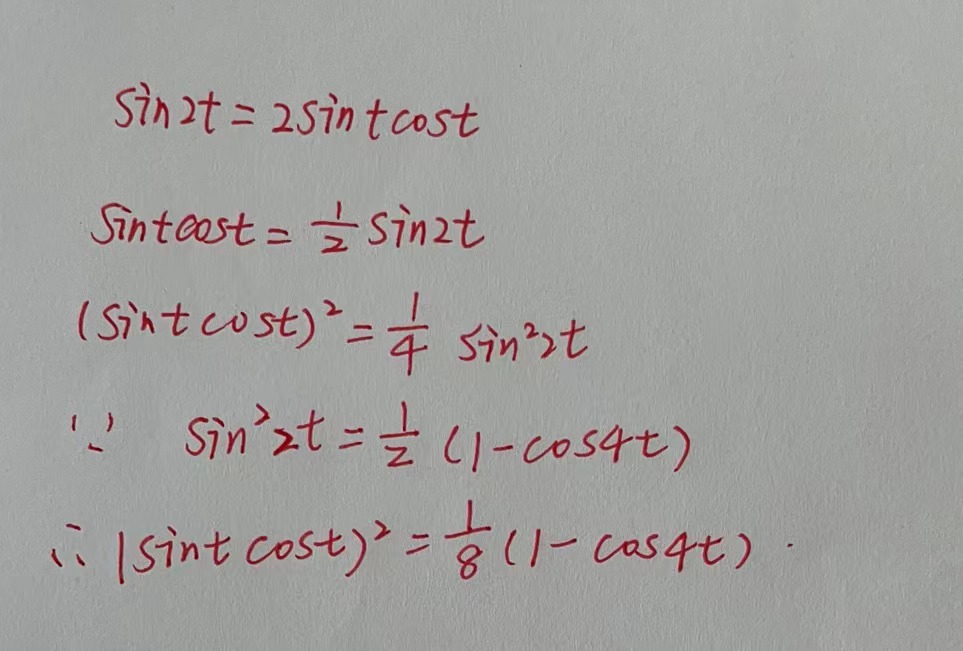 sin2t = 2sintcost
sintcost = 1/2 sin2t
(sint cost)² = 1/4 sin²2t
∵ sin²2t = 1/2 (1-cos4t)
∴ (sint cost)² = 1/8 (1-cos4t).